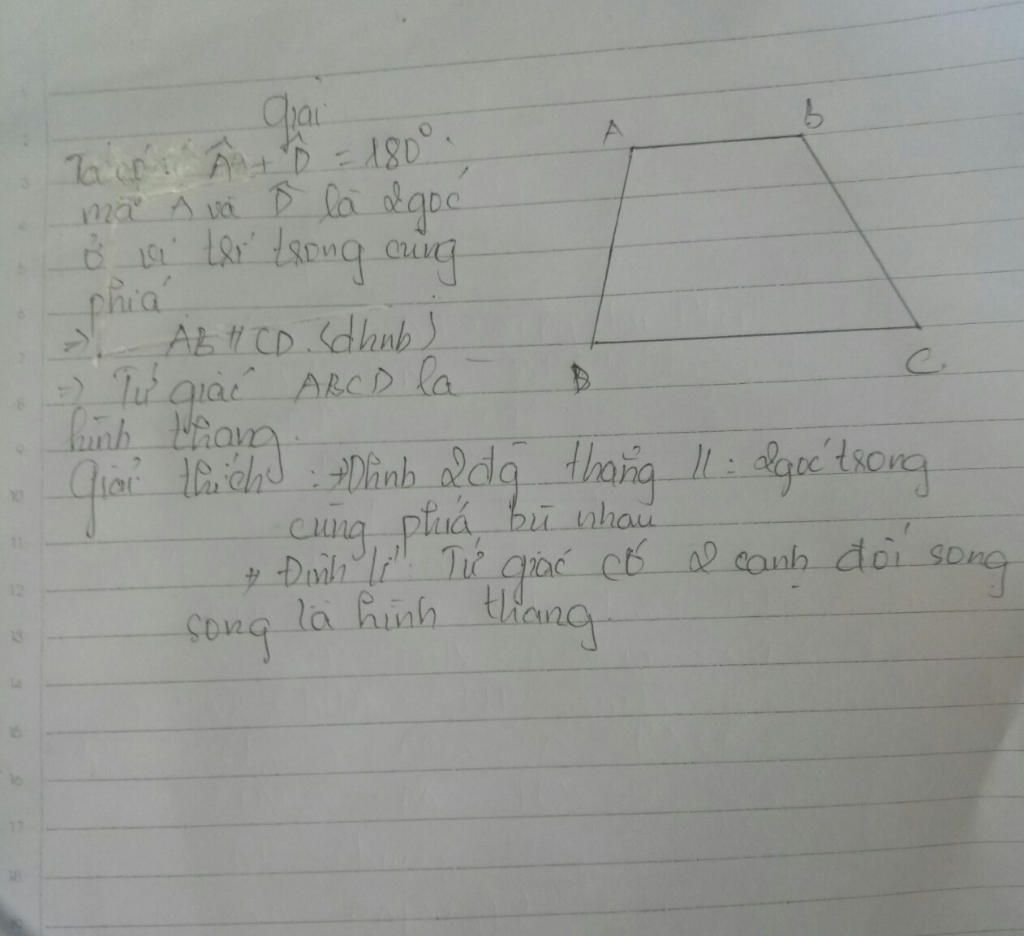 Giải
Ta có: Â + D̂ = 180°.
mà A và D̂ là 2 góc
ở vị trí trong cùng
phía
=> AB // CD. (dhnb)
=> Tứ giác ABCD là
hình thang.
Giải thích: → Dhnb 2 đg thẳng //: 2 góc trong
cùng phía bù nhau
→ Định lí: Tứ giác có 2 cạnh đối song
song là hình thang.
A
B
D
C